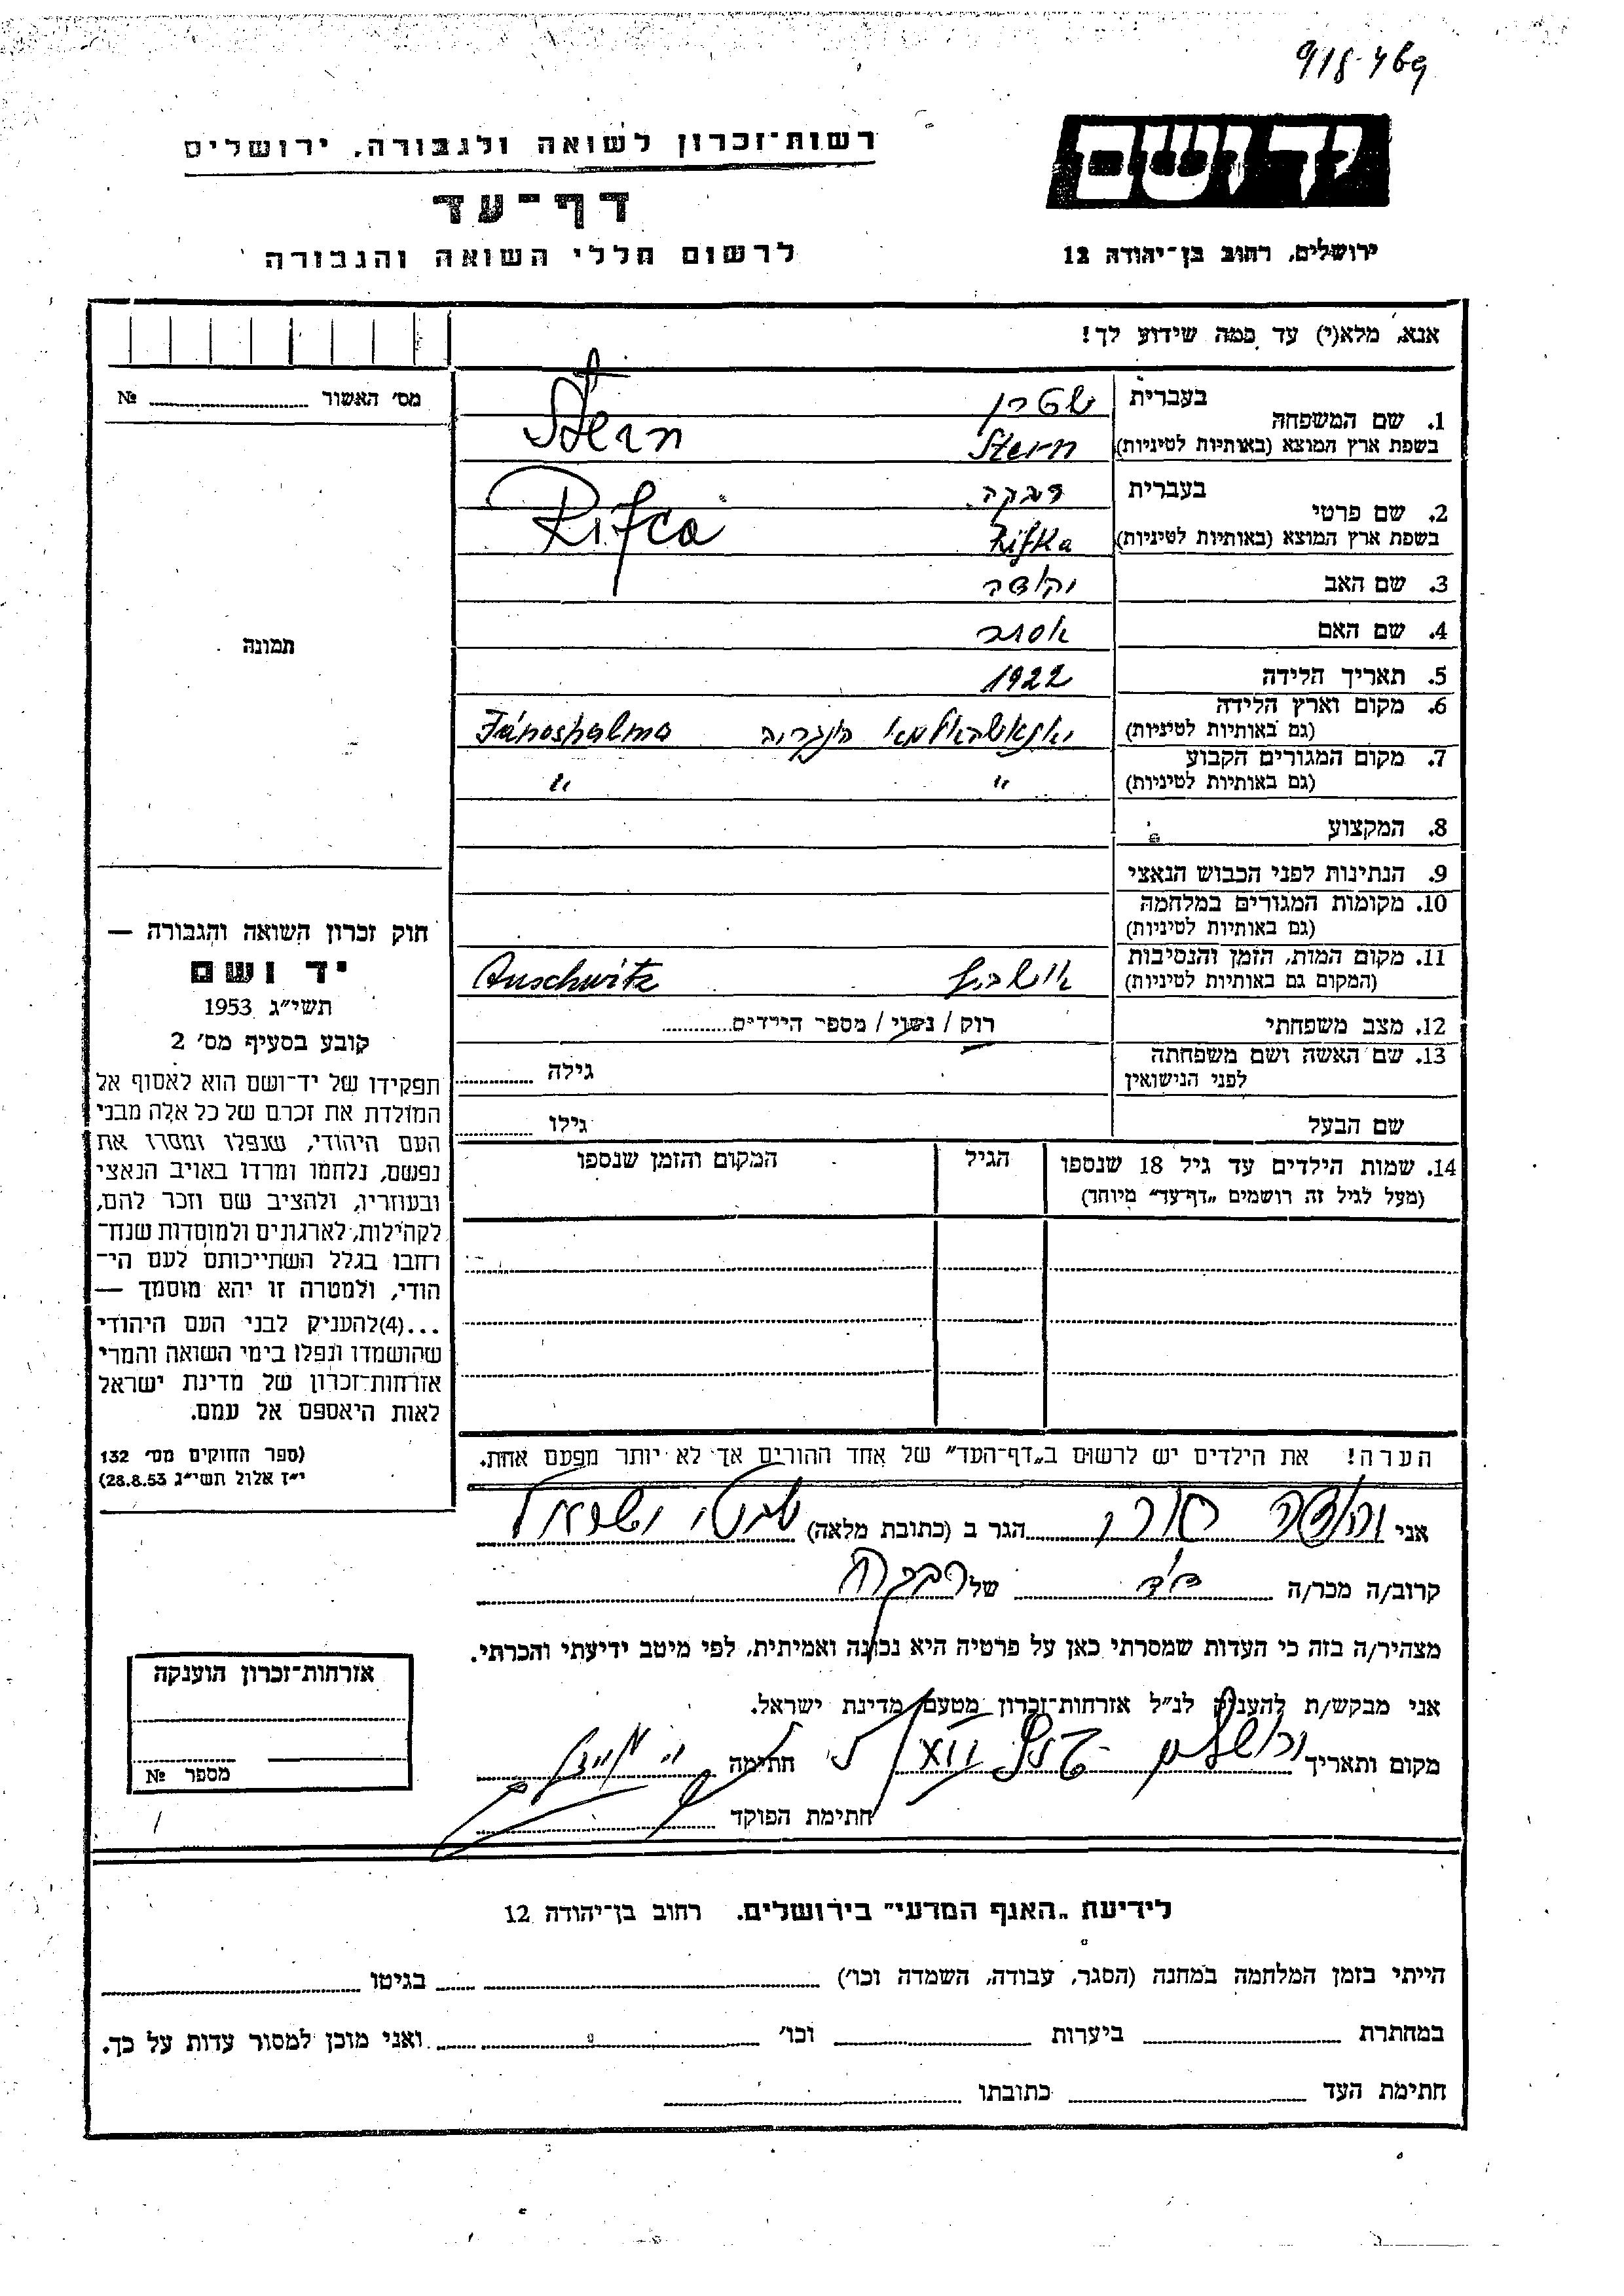 918-469
יד ושם
רשות־זכרון לשואה ולגבורה, ירושלים
דף־עד
לרשום חללי השואה והגבורה
ירושלים, רחוב בן־יהודה 12
אנא, מלא(י) עד כמה שידוע לך!
מס׳ האשור № 
1. שם המשפחה
בעברית שטרן
בשפת ארץ המוצא (באותיות לטיניות) Stern Stern
2. שם פרטי
בעברית רבקה
בשפת ארץ המוצא (באותיות לטיניות) Rifka Rifca
3. שם האב
4. שם האם אסתר
5. תאריך הלידה 1922
6. מקום וארץ הלידה
(גם באותיות לטיניות) Jánoshalma
7. מקום המגורים הקבוע
(גם באותיות לטיניות) " "
8. המקצוע
9. הנתינות לפני הכבוש הנאצי
10. מקומות המגורים במלחמה
(גם באותיות לטיניות)
11. מקום המות, הזמן והנסיבות
(המקום גם באותיות לטיניות) אושביץ Auschwitz
12. מצב משפחתי רוק / נשוי / מספר הילדים
13. שם האשה ושם משפחתה
לפני הנישואין גילה
שם הבעל גילו
14. שמות הילדים עד גיל 18 שנספו
(מעל לגיל זה רושמים „דף־עד" מיוחד)
הגיל
המקום והזמן שנספו
תמונה
חוק זכרון השואה והגבורה —
יד ושם
תשי״ג 1953
קובע בסעיף מס׳ 2
תפקידו של יד־ושם הוא לאסוף אל
המולדת את זכרם של כל אלה מבני
העם היהודי, שנפלו ומסרו את
נפשם, נלחמו ומרדו באויב הנאצי
ובעוזריו, ולהציב שם וזכר להם,
לקהילות, לארגונים ולמוסדות שנח־
רחבו בגלל השתייכותם לעם הי־
הודי, ולמטרה זו יהא מוסמך —
...(4)להעניק לבני העם היהודי
שהושמדו ונפלו בימי השואה והמרי
אזרחות־זכרון של מדינת ישראל
לאות היאספם אל עמם.
(ספר החוקים מס׳ 132
י״ז אלול תשי״ג 28.8.53)
הערה! את הילדים יש לרשום ב„דף־העד" של אחד ההורים אך לא יותר מפעם אחת.
אני הגר ב (כתובת מלאה)
קרוב/ה מכר/ה דוד של רבקה
מצהיר/ה בזה כי העדות שמסרתי כאן על פרטיה היא נכונה ואמיתית, לפי מיטב ידיעתי והכרתי.
אני מבקש/ת להעניק לנ״ל אזרחות־זכרון מטעם מדינת ישראל.
מקום ותאריך ירושלים חתימה
חתימת הפוקד
אזרחות־זכרון הוענקה
מספר №
לידיעת „האגף המדעי" בירושלים. רחוב בן־יהודה 12
הייתי בזמן המלחמה במחנה (הסגר, עבודה, השמדה וכו׳) בגיטו
במחתרת ביערות וכו׳ ואני מוכן למסור עדות על כך.
חתימת העד כתובתו